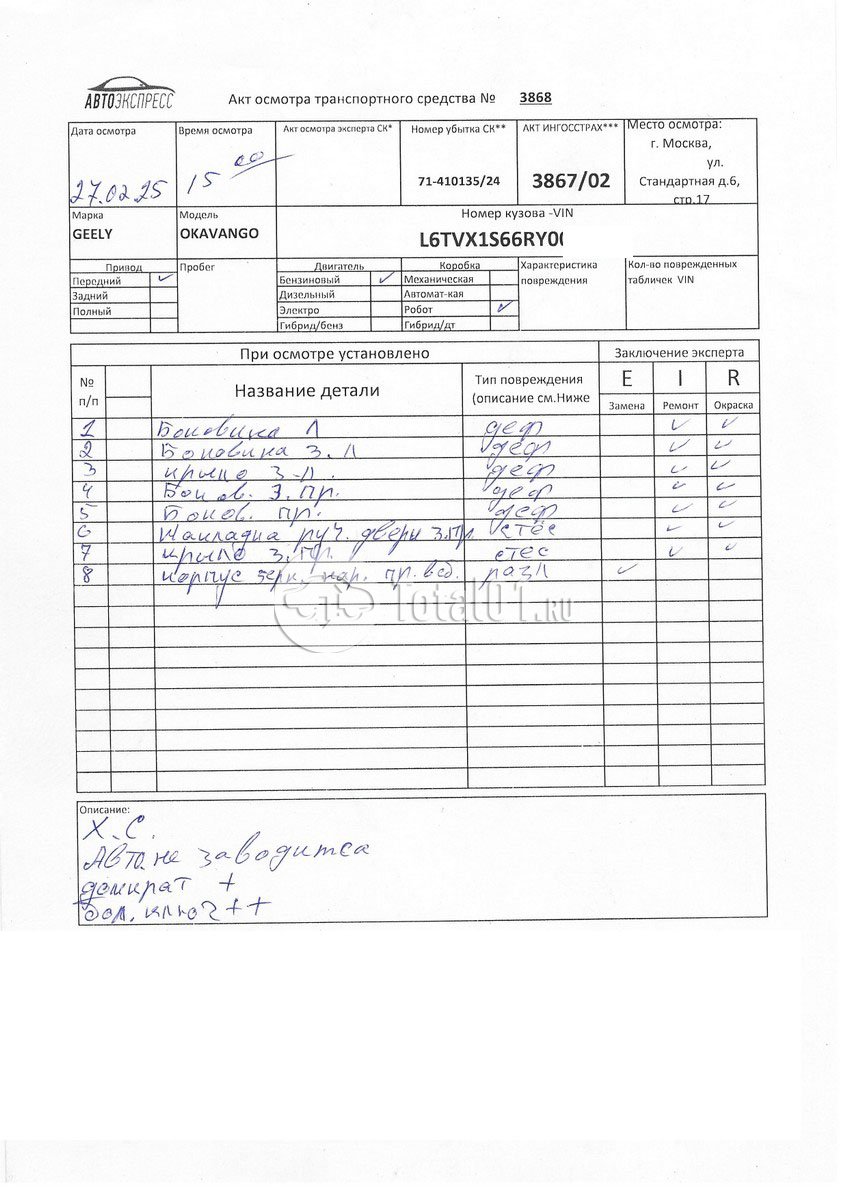 АВТОЭКСПРЕСС
Акт осмотра транспортного средства № 3868
Дата осмотра
27.02.25
Время осмотра
15 00
Акт осмотра эксперта СК*
Номер убытка СК**
71-410135/24
АКТ ИНГОССТРАХ***
3867/02
Место осмотра:
г. Москва,
ул.
Стандартная д.6,
стр.17
Марка
GEELY
Модель
OKAVANGO
Номер кузова -VIN
L6TVX1S66RY0
Привод
Передний ✓
Задний
Полный
Пробег
Двигатель
Бензиновый ✓
Дизельный
Электро
Гибрид/бенз
Коробка
Механическая
Автомат-кая
Робот ✓
Гибрид/дт
Характеристика
повреждения
Кол-во поврежденных
табличек VIN
При осмотре установлено
Заключение эксперта
№
п/п
Название детали
Тип повреждения
(описание см.Ниже
E I R
Замена Ремонт Окраска
1 Боковина Л деф ✓ ✓
2 Боковина З. Л деф ✓ ✓
3 крыло З-Л. деф ✓ ✓
4 Боков. З. Пр. деф ✓ ✓
5 Боков. пр. деф ✓ ✓
6 Накладка руч. двери З.Пр. стёс ✓ ✓
7 крыло З.Пр. стес ✓ ✓
8 корпус зерк. нар. пр. в сб. разл ✓
Total01.RU
Описание:
Х.С.
Авто. не заводится
домкрат +
бал. ключ + +